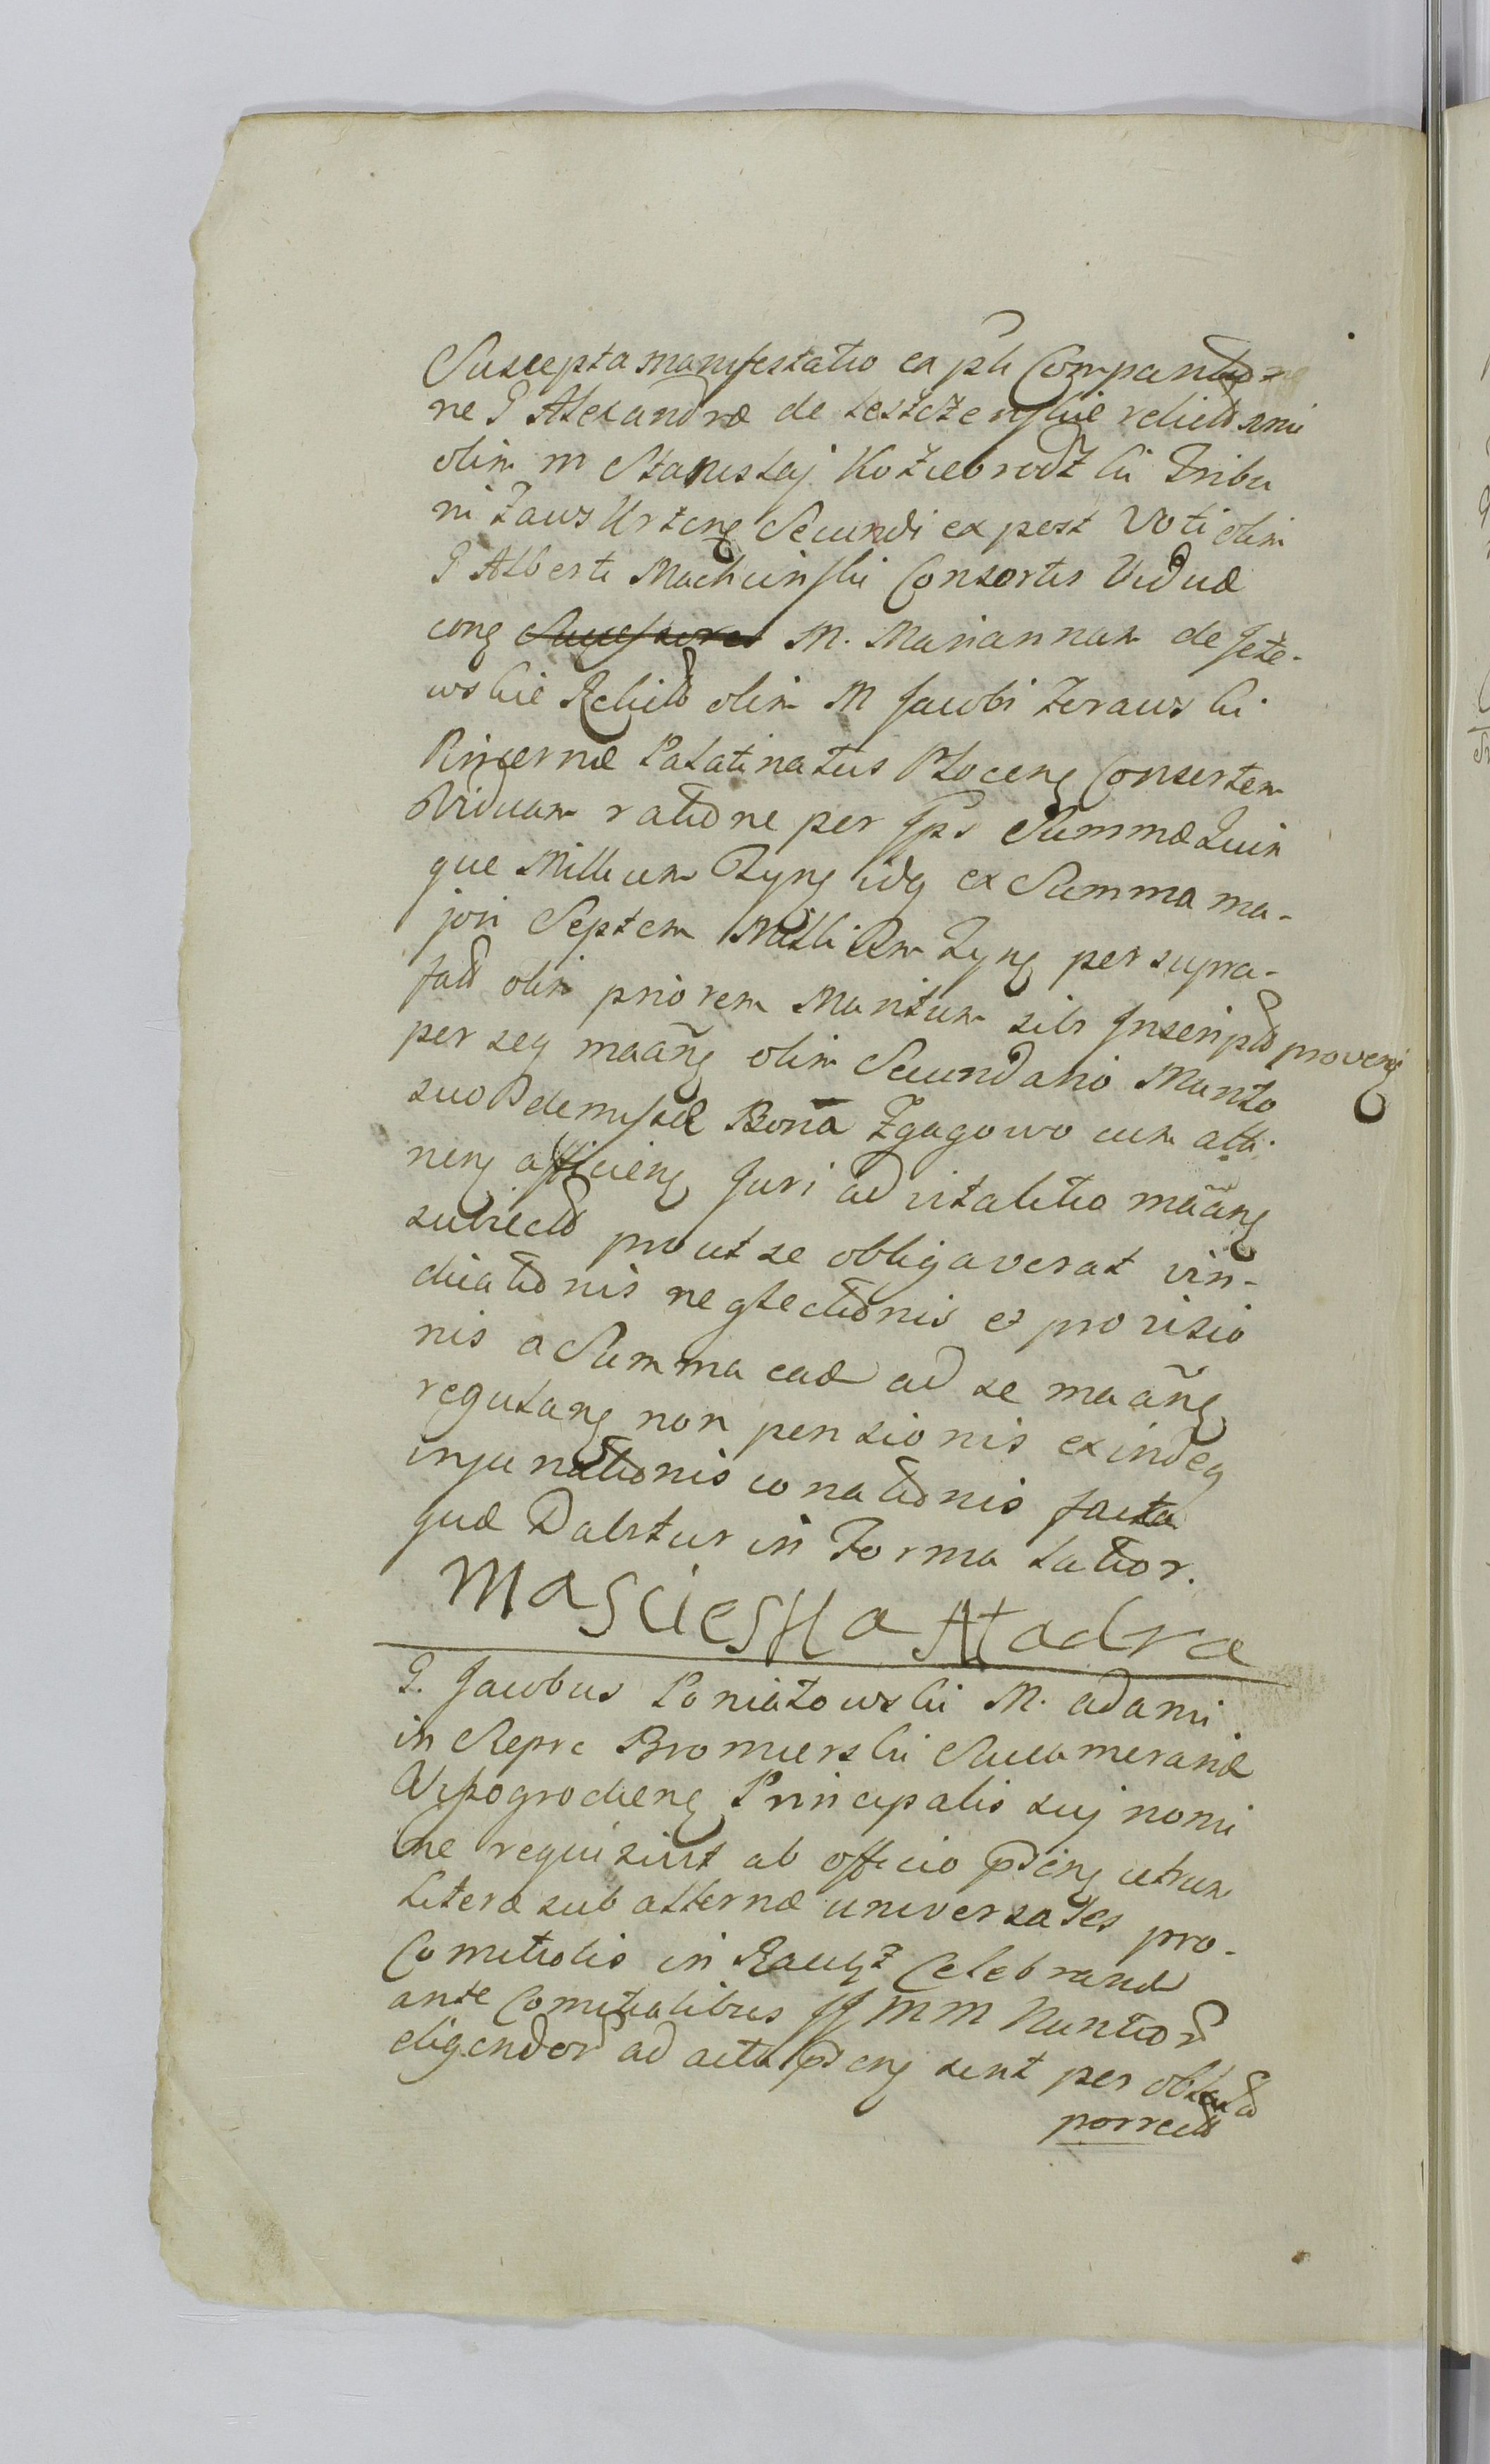 Suscepta manifestatio ex pli Comparitio=
ne G Alexandræ de Leszczenskie relictæ imi
olim M Stanislaj Koziebrodzki Tribu
ni Zawskrzeng Secundi ex post Voti olim
G Alberti Machcinski Consortis Viduæ
cong M. Mariannam de Jeże-
wskie Relictā olim M Jacobi Zerawski
Pincernæ Palatinatus Płoceng Consortem
Viduam ratione per Ips Summæ Quin
que Millium Fpng idq ex Summa ma-
jori Septem Millium Fpng per supra-
fatt olim priorem Maritum sibi Inscriptā proveng
per seq maāng olim Secundario Marito
suo demissæ Bona Zgagowo cum atti
neng afficieng Juri advitalitio māāng
subiectā prout se obligaverat vin-
dicationis neglectionis et provisio
nis a Summa eadē ad se maāng
regulang non pensionis exindeq
injuriationis conationis facta
quæ Dabitur in Forma Latior.
Mascieska Alladra
G. Jacobus Poniatowski M. Adami
in Sepre Bromierski Succamerarid
Wyszogrodieng Principalis suj nomi
ne requisivit ab officio pñeng utrum
Literæ sub alternæ universales pro-
Comitiolis in Raciąz Celebrand
ante Comitialibus JJ MM Nuntiōr
eligendōr ad acta pñeng sint per oblatā
porrectā